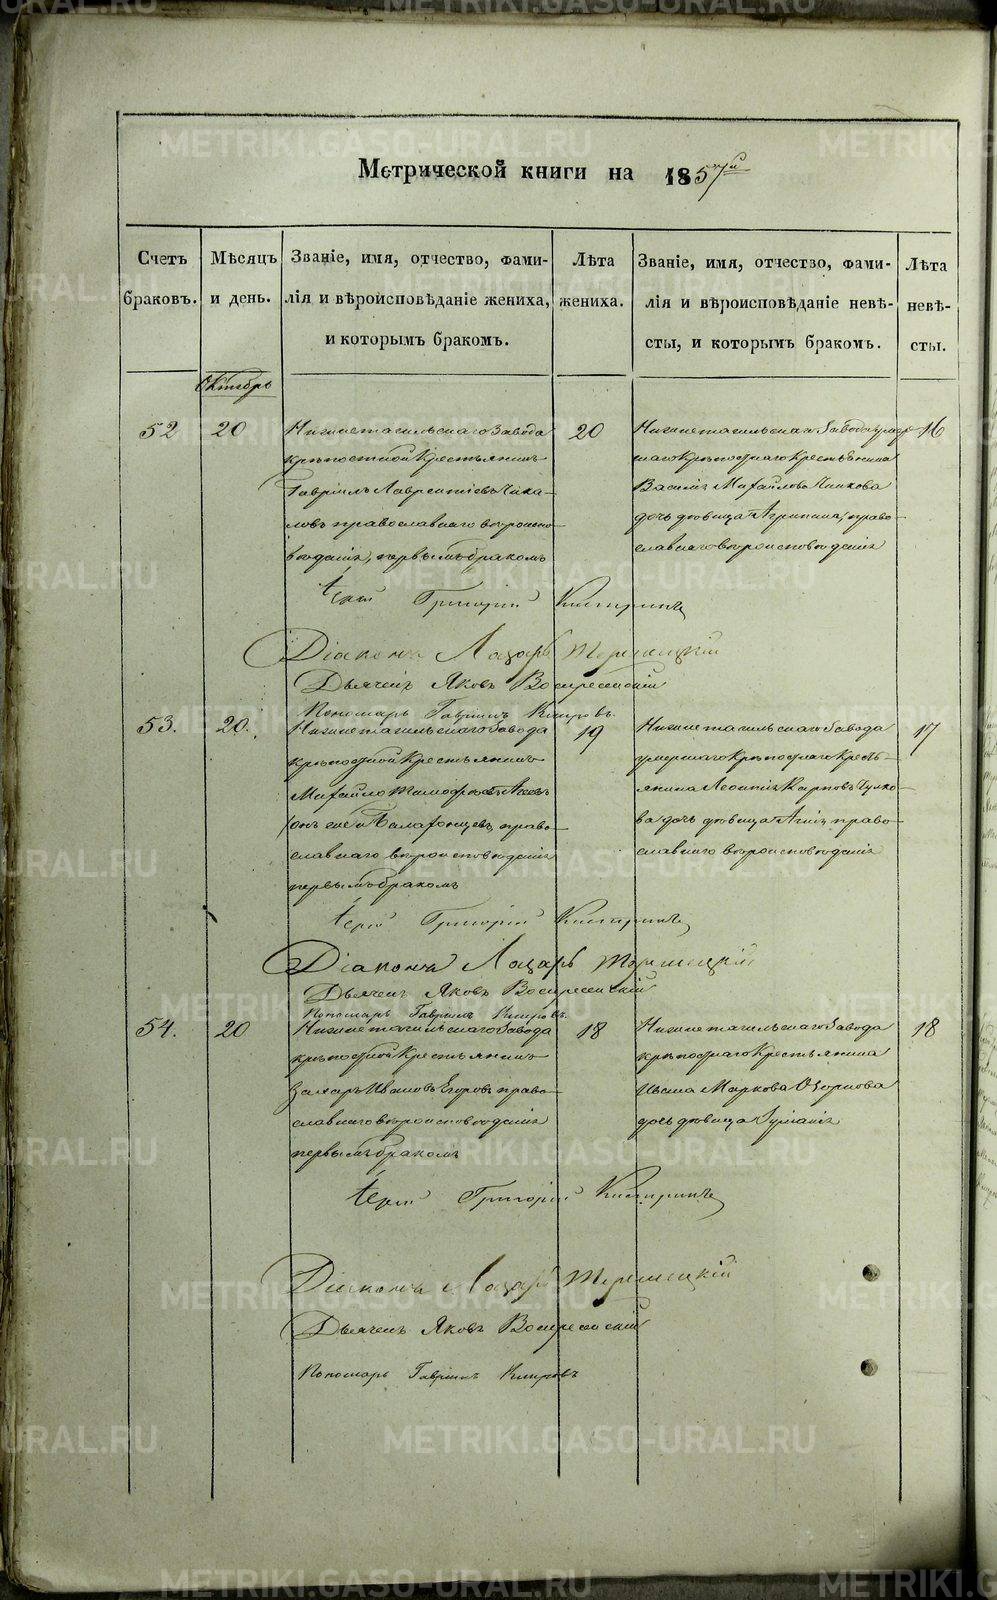 Метрической книги на 1857й
Счетъ браковъ.
Мѣсяцъ и день.
Званіе, имя, отчество, фами-
лія и вѣроисповѣданіе жениха,
и которымъ бракомъ.
Лѣта жениха.
Званіе, имя, отчество, фами-
лія и вѣроисповѣданіе невѣ-
сты, и которымъ бракомъ.
Лѣта невѣ-
сты.
Октябрь
52
20
Нижнетагильскаго Завода
крѣпостной Крестьянинъ
Гавріилъ Лаврентіевъ Чека-
ловъ православнаго вѣроиспо-
вѣданія, первымъ бракомъ
20
Нижнетагильскаго Завода умер-
шаго Крѣпостнаго Крестьянина
Василія Михайлова
дочь дѣвица Агрипина, право-
славнаго вѣроисповѣданія
16
Іерей Григорій
Діаконъ Лазарь
Дьячекъ Яковъ Воскресенскій
Пономарь Гавріилъ Кипровъ
53.
20.
Нижнетагильскаго Завода
крѣпостной Крестьянинъ
Михайло Тимофѣевъ
онъ же и православнаго
вѣроисповѣданія
первымъ бракомъ
19
Нижнетагильскаго Завода
умершаго Крѣпостнаго Кресть-
янина Леонтія Карпова Чулко-
ва дочь дѣвица право-
славнаго вѣроисповѣданія
17
Іерей Григорій
Діаконъ Лазарь
Дьячекъ Яковъ Воскресенскій
Пономарь Гавріилъ Кипровъ
54.
20
Нижнетагильскаго Завода
крѣпостной Крестьянинъ
Захаръ Ивановъ Егоровъ право-
славнаго вѣроисповѣданія
первымъ бракомъ
18
Нижнетагильскаго Завода
крѣпостнаго Крестьянина
Ивана Маркова Озорнова
дочь дѣвица
18
Іерей Григорій
Діаконъ Лазарь
Дьячекъ Яковъ Воскресенскій
Пономарь Гавріилъ Кипровъ
METRIKI.GASO-URAL.RU